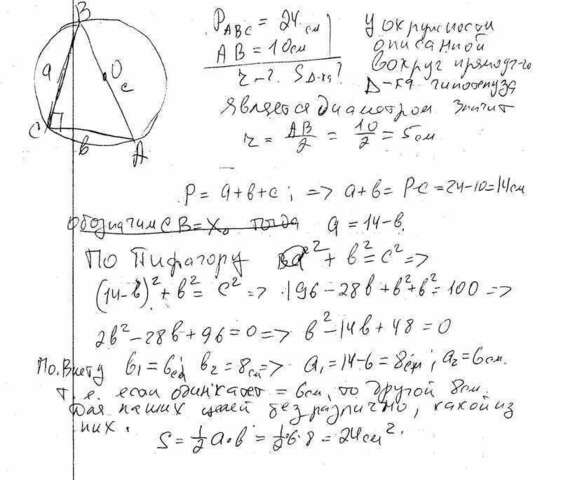 B
a
O
c
C
b
A
P ABC = 24 см
AB = 10 см
r - ? S Δ-ка?
У окружности
описанной
вокруг прямоуг-го
Δ-ка гипотенуза
является диаметром значит
r = AB/2 = 10/2 = 5 см
P = a+b+c; => a+b = P-c = 24-10 = 14 см
обозначим CB = X, тогда a = 14-b.
По Пифагору a² + b² = c² =>
(14-b)² + b² = c² => 196 - 28b + b² + b² = 100 =>
2b² - 28b + 96 = 0 => b² - 14b + 48 = 0
По Виету b₁ = 6 см b₂ = 8 см => a₁ = 14-6 = 8 см; a₂ = 6 см.
т.е. если один катет = 6 см, то другой 8 см.
Для наших целей безразлично, какой из
них.
S = ½ a·b = ½ 6·8 = 24 см².